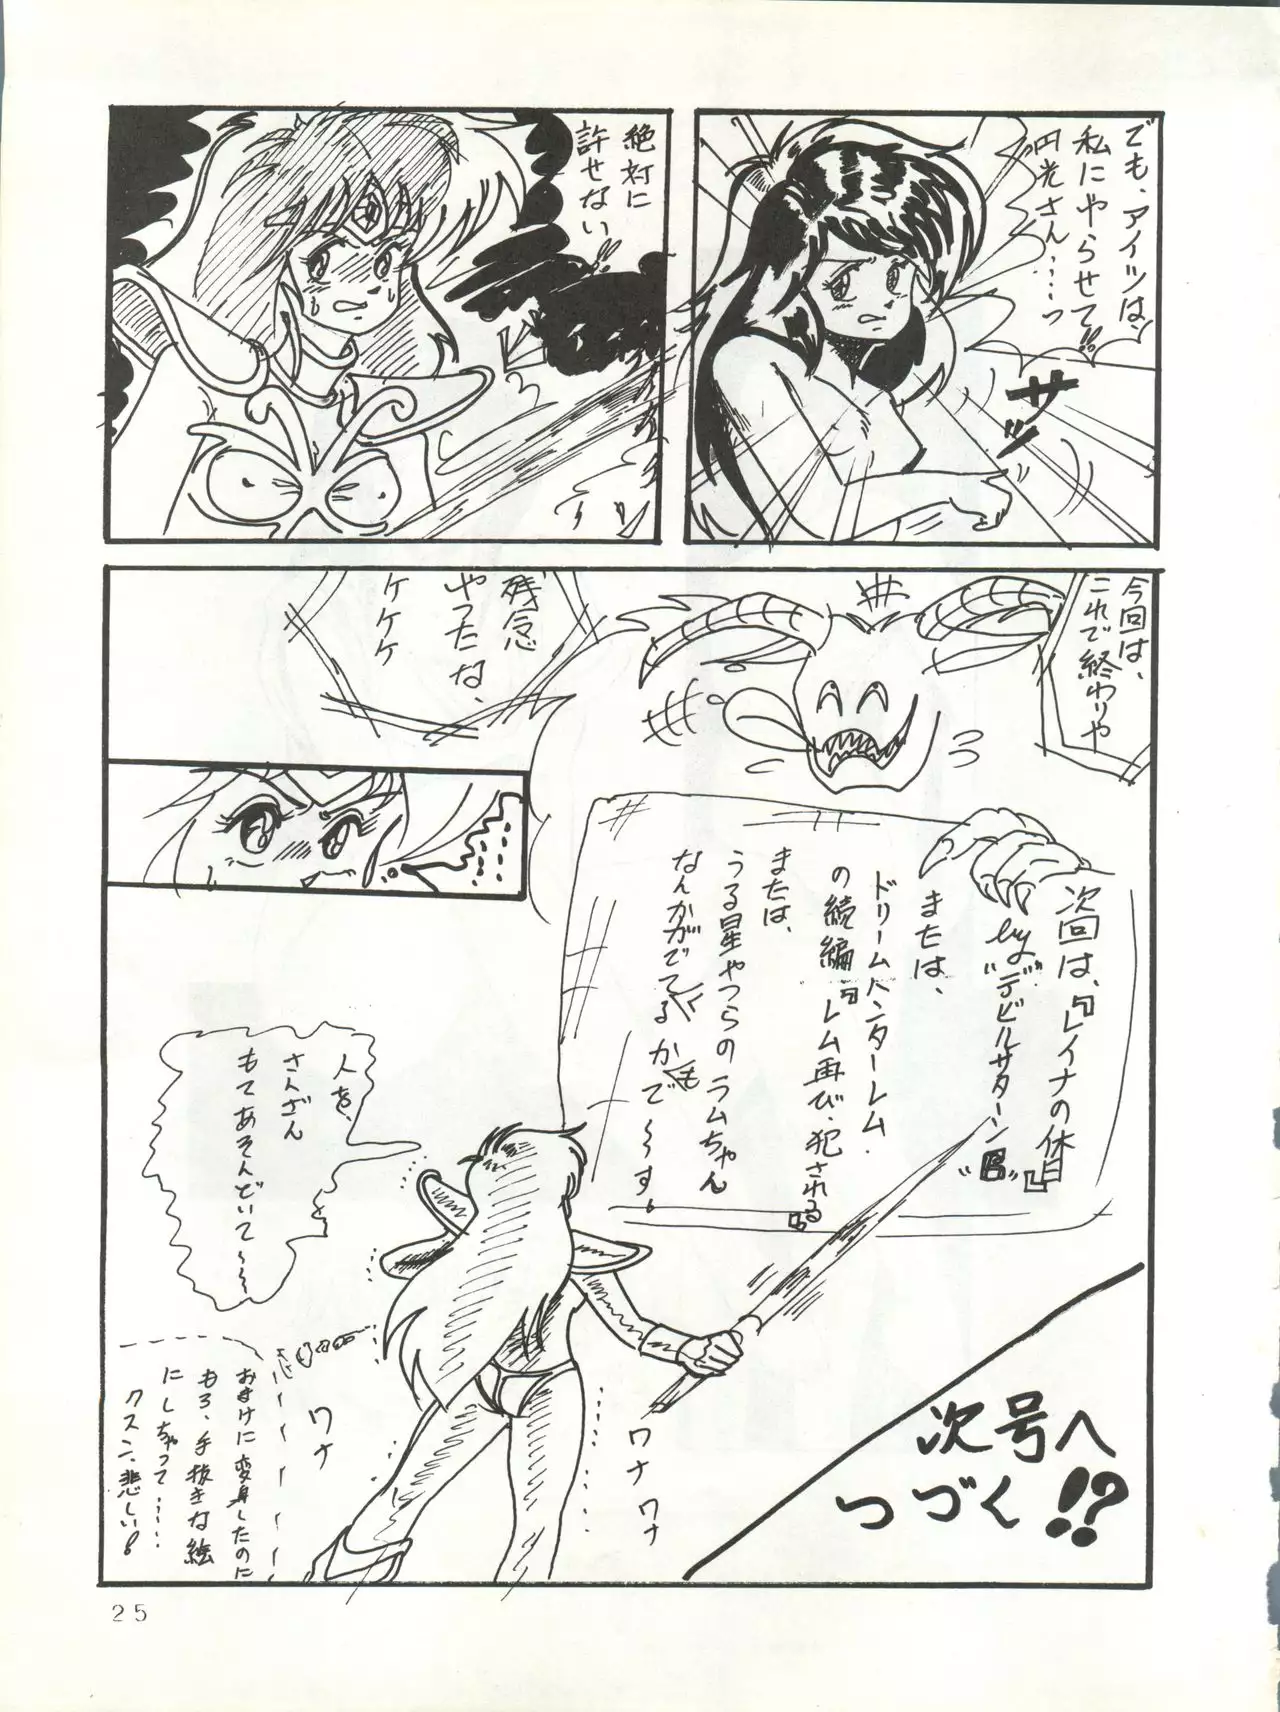 でも、アイツは、
私にやらせて!!
円光さん……っ
サッ
絶対に
許せない
今回は、
これで終わりや
残念
やったな、
ケケケ
次回は、『レイナの休日』
by“デビルサターン6”
または、
ドリームハンターレム
の続編『レム再び、犯される』
または、
うる星やつらのラムちゃん
なんかがでてくるかもで〜〜す。
人を、
さんざん
もてあそんどいて〜〜〜
ワナ
ワナ
ワナ
おまけに変身したのに
もろ、手抜きな絵
にしちゃって……
クスン、悲しい!
次号へ
つづく!?
25